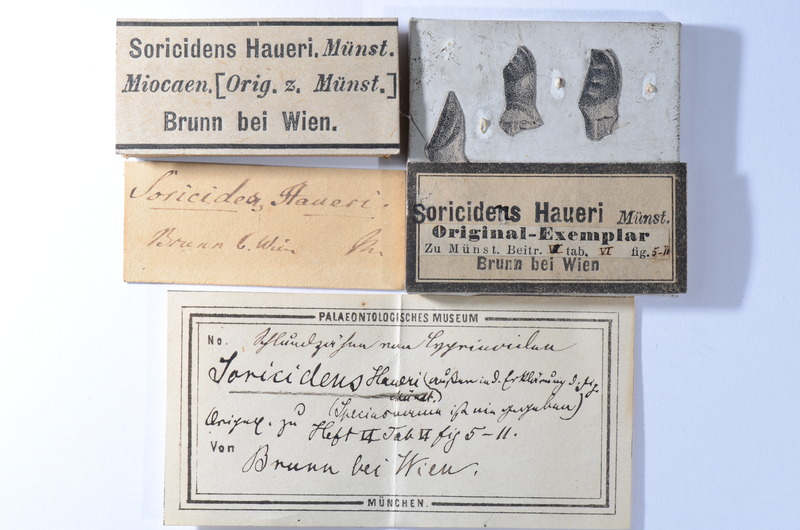 Soricidens Haueri. Münst.
Miocaen. [Orig. z. Münst.]
Brunn bei Wien.
Soricidens Haueri.
Brunn b. Wien
Soricidens Haueri Münst.
Original-Exemplar
Zu Münst. Beitr. VI tab. VI fig. 5-11
Brunn bei Wien
PALAEONTOLOGISCHES MUSEUM
No. Schlundzähne von Cyprinoiden
Soricidens Haueri (außen in d. Erklärung d. Fig.
Münst.
(Speciesname ist nie gegeben)
Origal. zu Heft VI Tab VI fig 5-11.
Von Brunn bei Wien.
MÜNCHEN.